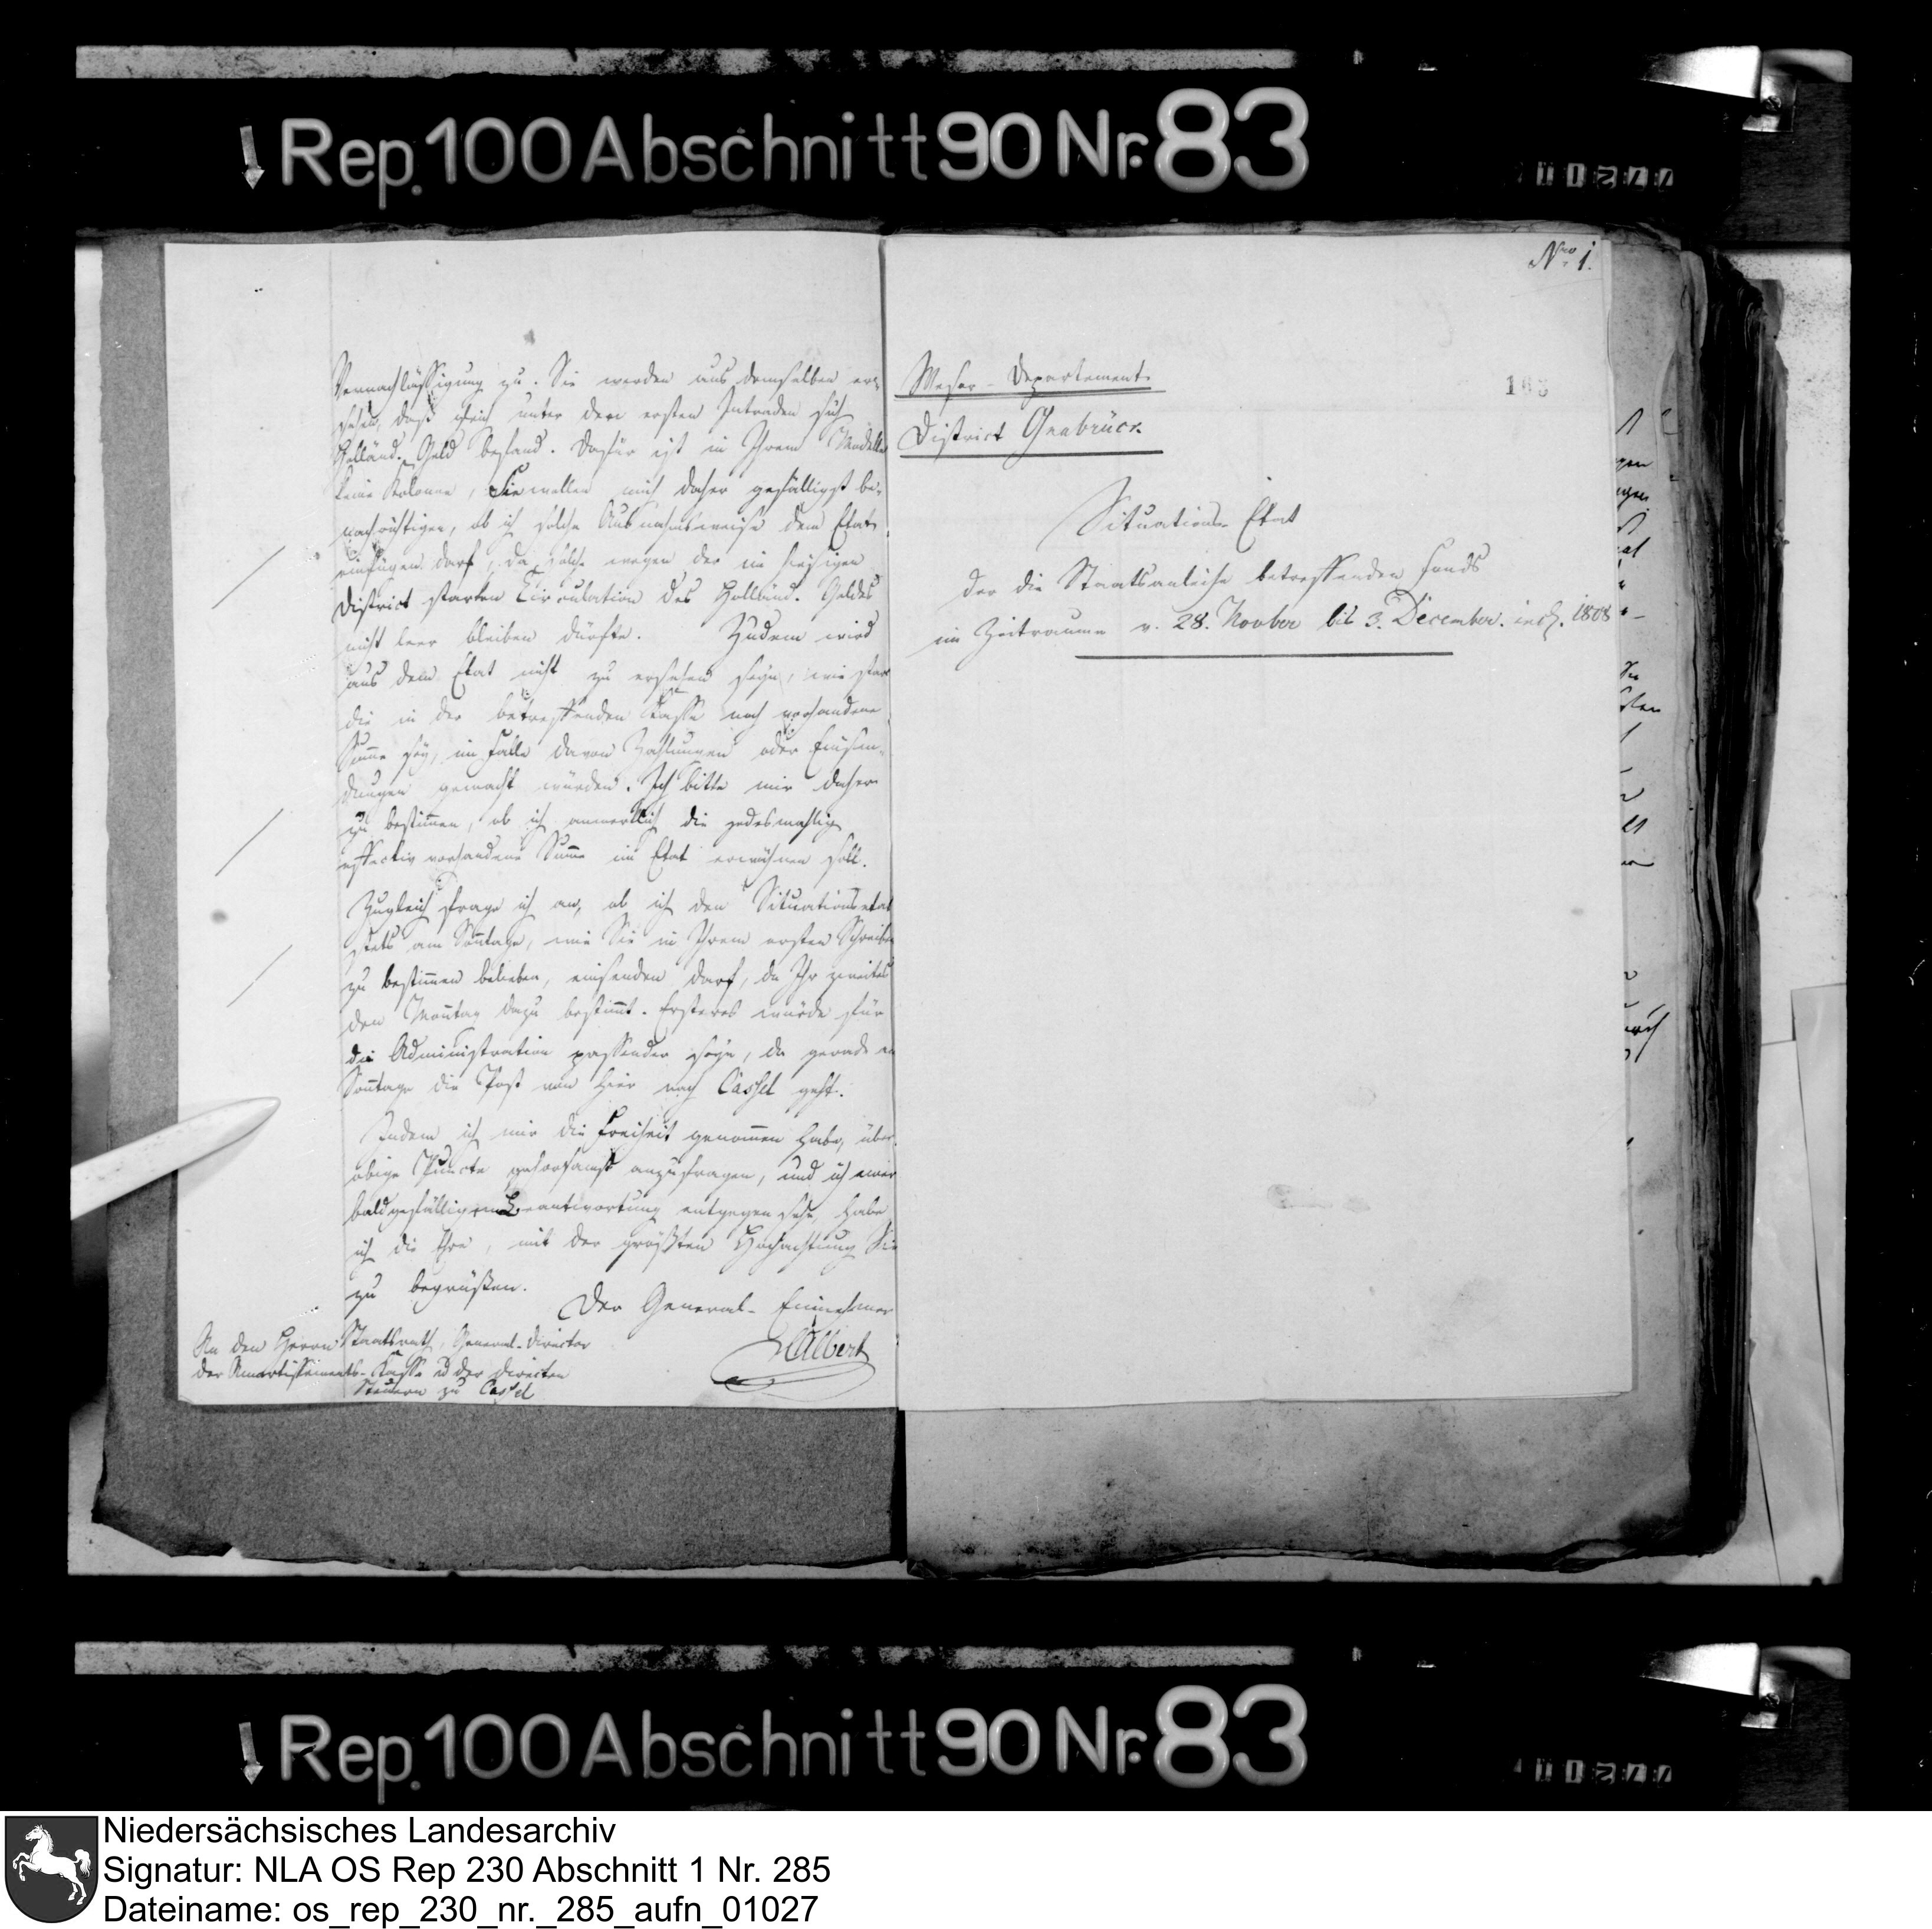 Rep. 100 Abschnitt 90 Nr. 83
Vernachlässigung zu. Sie werden aus demselben er-
sehen, daß sich unter den ersten Intraden
Holländ. Geld befand. Dafür ist in Ihrem Modelle
keine Kolonne, Sie wollen mich daher gefälligst be-
nachrichtigen, ob ich solche Ausnahmsweise dem Etat
einfügen darf, da solche wegen der im hiesigen
District starken Circulation des Holländ. Geldes
nicht leer bleiben dürfte. Zudem wird
aus dem Etat nicht zu ersehen seyn, wie stark
die in der betreffenden Kasse noch vorhandene
Summe sey, im Falle davon Zahlungen oder Einsen-
dungen gemacht würden. Ich bitte mir daher
zu bestimmen, ob ich die jedesmahlige
effectiv vorhandene Summe im Etat erwähnen soll.
Zugleich frage ich an, ob ich den Situationsetat
stets am Sonntage, wie Sie in Ihrem ersten Schreiben
zu bestimmen belieben, einsenden darf, da Ihr zweites
den Montag dazu bestimmt. Ersteres würde für
die Administration passender seyn, da gerade am
Sonntage die Post von hier nach Cassel geht.
Indem ich mir die Freiheit genommen habe, über
obige Puncte gehorsamst anzufragen, und ich einer
baldgefälligen Beantwortung entgegen sehe, habe
ich die Ehre, mit der größten Hochachtung Sie
zu begrüßen.
Der General-Einnehmer
Albert
An den Herrn Staatsrath, General-Director
der Amortissements-Kasse und der directen
Steuern zu Cassel
Nro 1.
103
Weser-Departement.
District Osnabrück.
Situations-Etat
der die Staatsanleihe betreffenden Fonds
im Zeitraume v. 28. Novber bis 3. December. incl. 1808
Rep. 100 Abschnitt 90 Nr. 83
Niedersächsisches Landesarchiv
Signatur: NLA OS Rep 230 Abschnitt 1 Nr. 285
Dateiname: os_rep_230_nr._285_aufn_01027